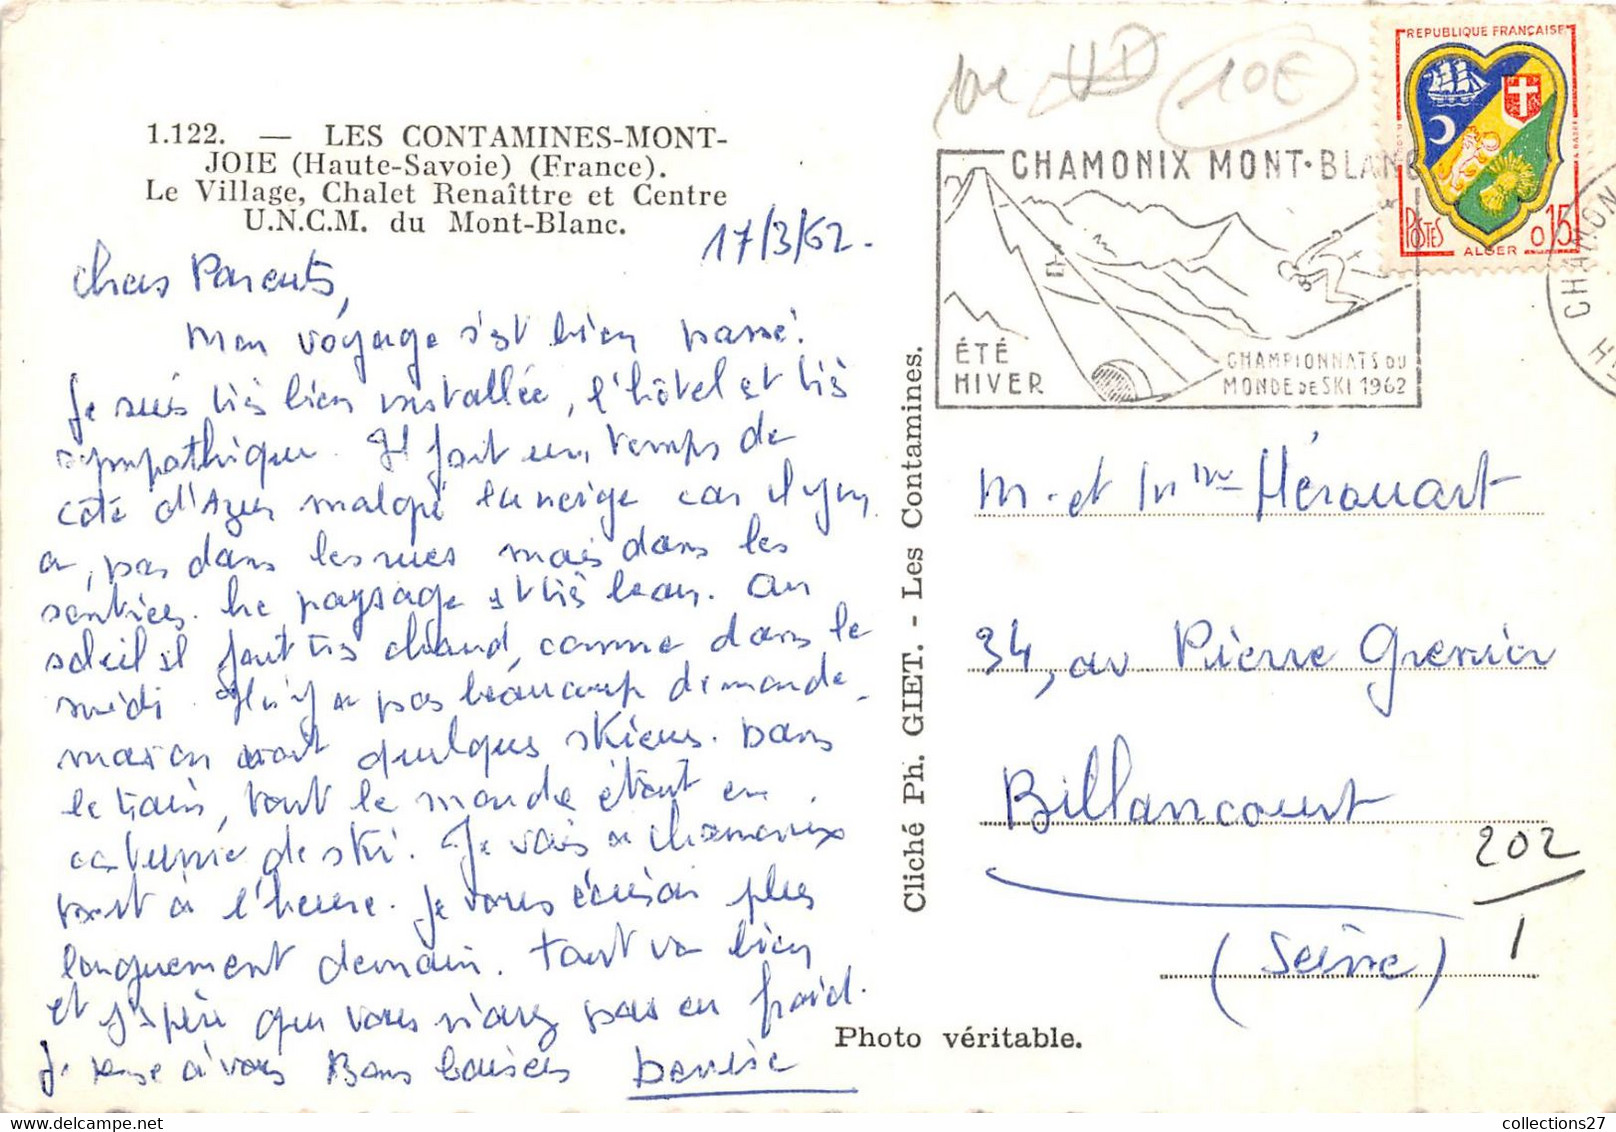 1.122. — LES CONTAMINES-MONT-
JOIE (Haute-Savoie) (France).
Le Village, Chalet Renaîttre et Centre
U.N.C.M. du Mont-Blanc.
17/3/62.
Chers Parents,
Mon voyage s'est bien passé.
Je suis très bien installée, l'hôtel est très
sympathique. Il fait un temps de
côte d'Azur malgré la neige car il y en
a, pas dans les rues mais dans les
sentiers. Le paysage est très beau. Au
soleil il fait très chaud, comme dans le
midi. Il n'y a pas beaucoup de monde.
quelques skieurs. Dans
le train, tout le monde était en
costume de ski. Je vais à Chamonix
tout à l'heure. Je vous écrirai plus
longuement demain. Tout va bien
et j'espère que vous n'avez pas eu froid.
Je pense à vous Bons baisers Denise
10€
CHAMONIX MONT-BLANC
ÉTÉ
HIVER
CHAMPIONNATS DU
MONDE DE SKI 1962
REPUBLIQUE FRANÇAISE
POSTES
ALGER
0,15
CHAMONIX
Cliché Ph. GIET. - Les Contamines.
M. et Mme Hérouart
34, av Pierre Grenier
Billancourt
202
1
(Seine)
Photo véritable.
collections27